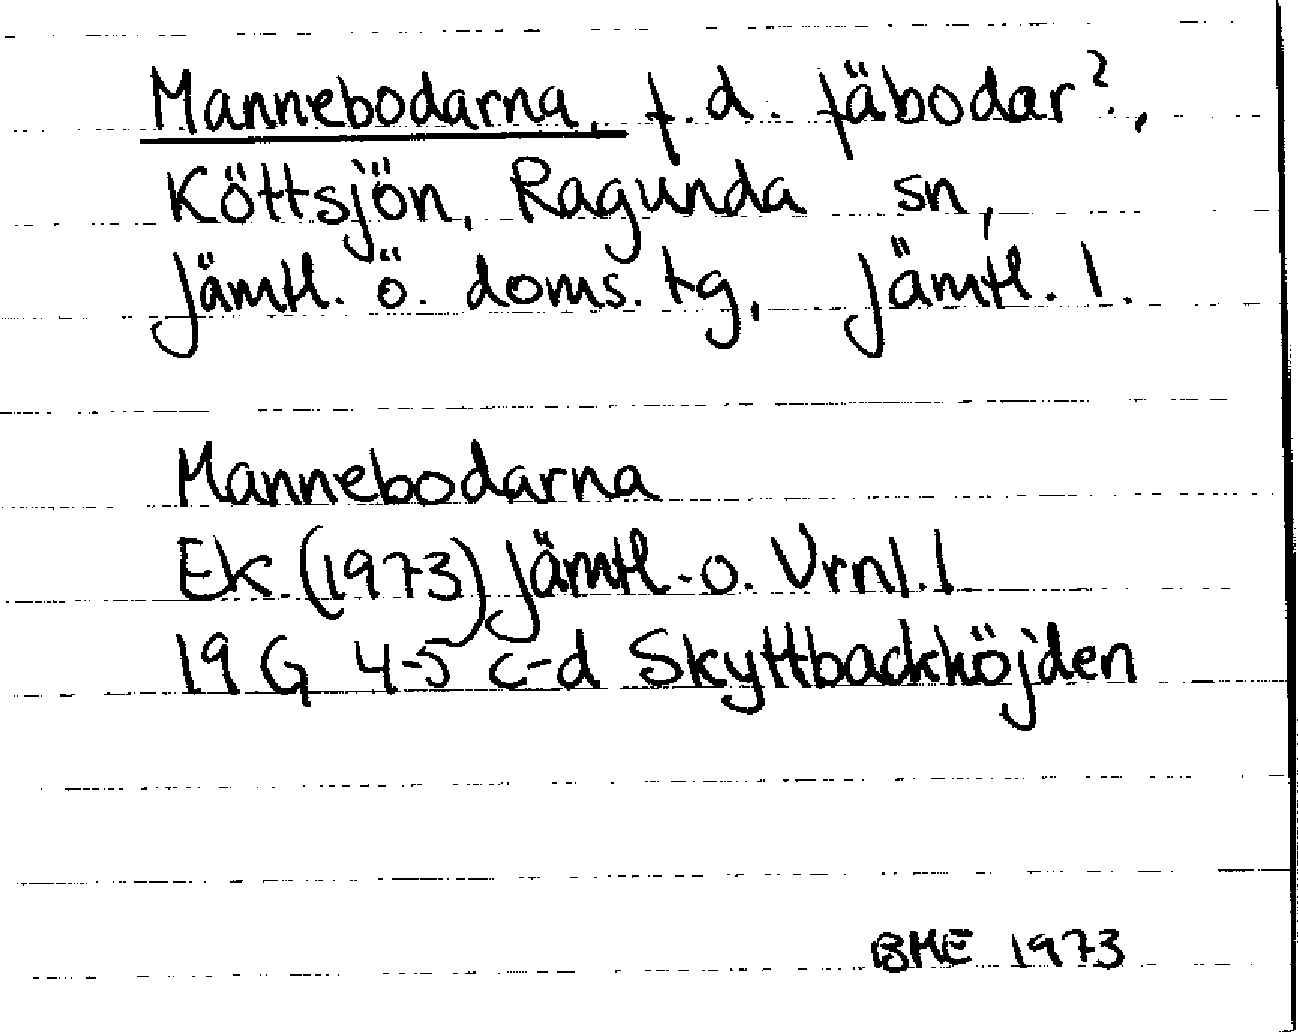 Mannebodarna, f.d. fäbodar?,
Köttsjön, Ragunda sn,
Jämtl. ö. doms. tg, Jämtl. l.
Mannebodarna
Ek (1973) Jämtl. o. Vrnl. l
19 G 4-5 c-d Skyttbackhöjden
BME 1973